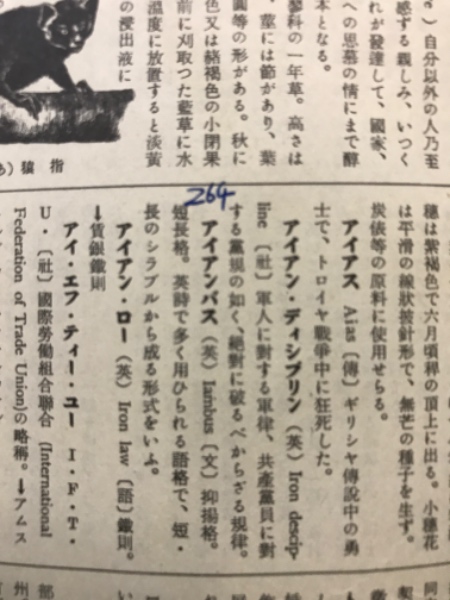 e) 自分以外の人乃至
感ずる親しみ、いつく
れが發達して、國家、
への思慕の情にまで醇
本となる。
蓼科の一年草。高さは
、莖には節があり、葉
圓等の形がある。秋に
色又は赭褐色の小閉果
前に刈取つた藍草に水
溫度に放置すると淡黄
の浸出液に
猿 指
264
穗は紫褐色で六月頃稈の頂上に出る。小穗花
は平滑の線狀披針形で、無芒の種子を生ず。
炭俵等の原料に使用せらる。
アイアス Aias〔傳〕ギリシヤ傳說中の勇
士で、トロイヤ戰爭中に狂死した。
アイアン・ディシプリン（英）Iron descip-
line〔社〕軍人に對する軍律、共產黨員に對
する黨規の如く、絕對に破るべからざる規律。
アイアンバス（英）Iambus〔文〕抑揚格。
短長格。英詩で多く用ひられる語格で、短・
長のシラブルから成る形式をいふ。
アイアン・ロー（英）Iron law〔語〕鐵則。
→賃銀鐵則
アイ・エフ・ティー・ユー I・F・T・
U・〔社〕國際勞働組合聯合（International
Federation of Trade Union)の略稱。→アムス